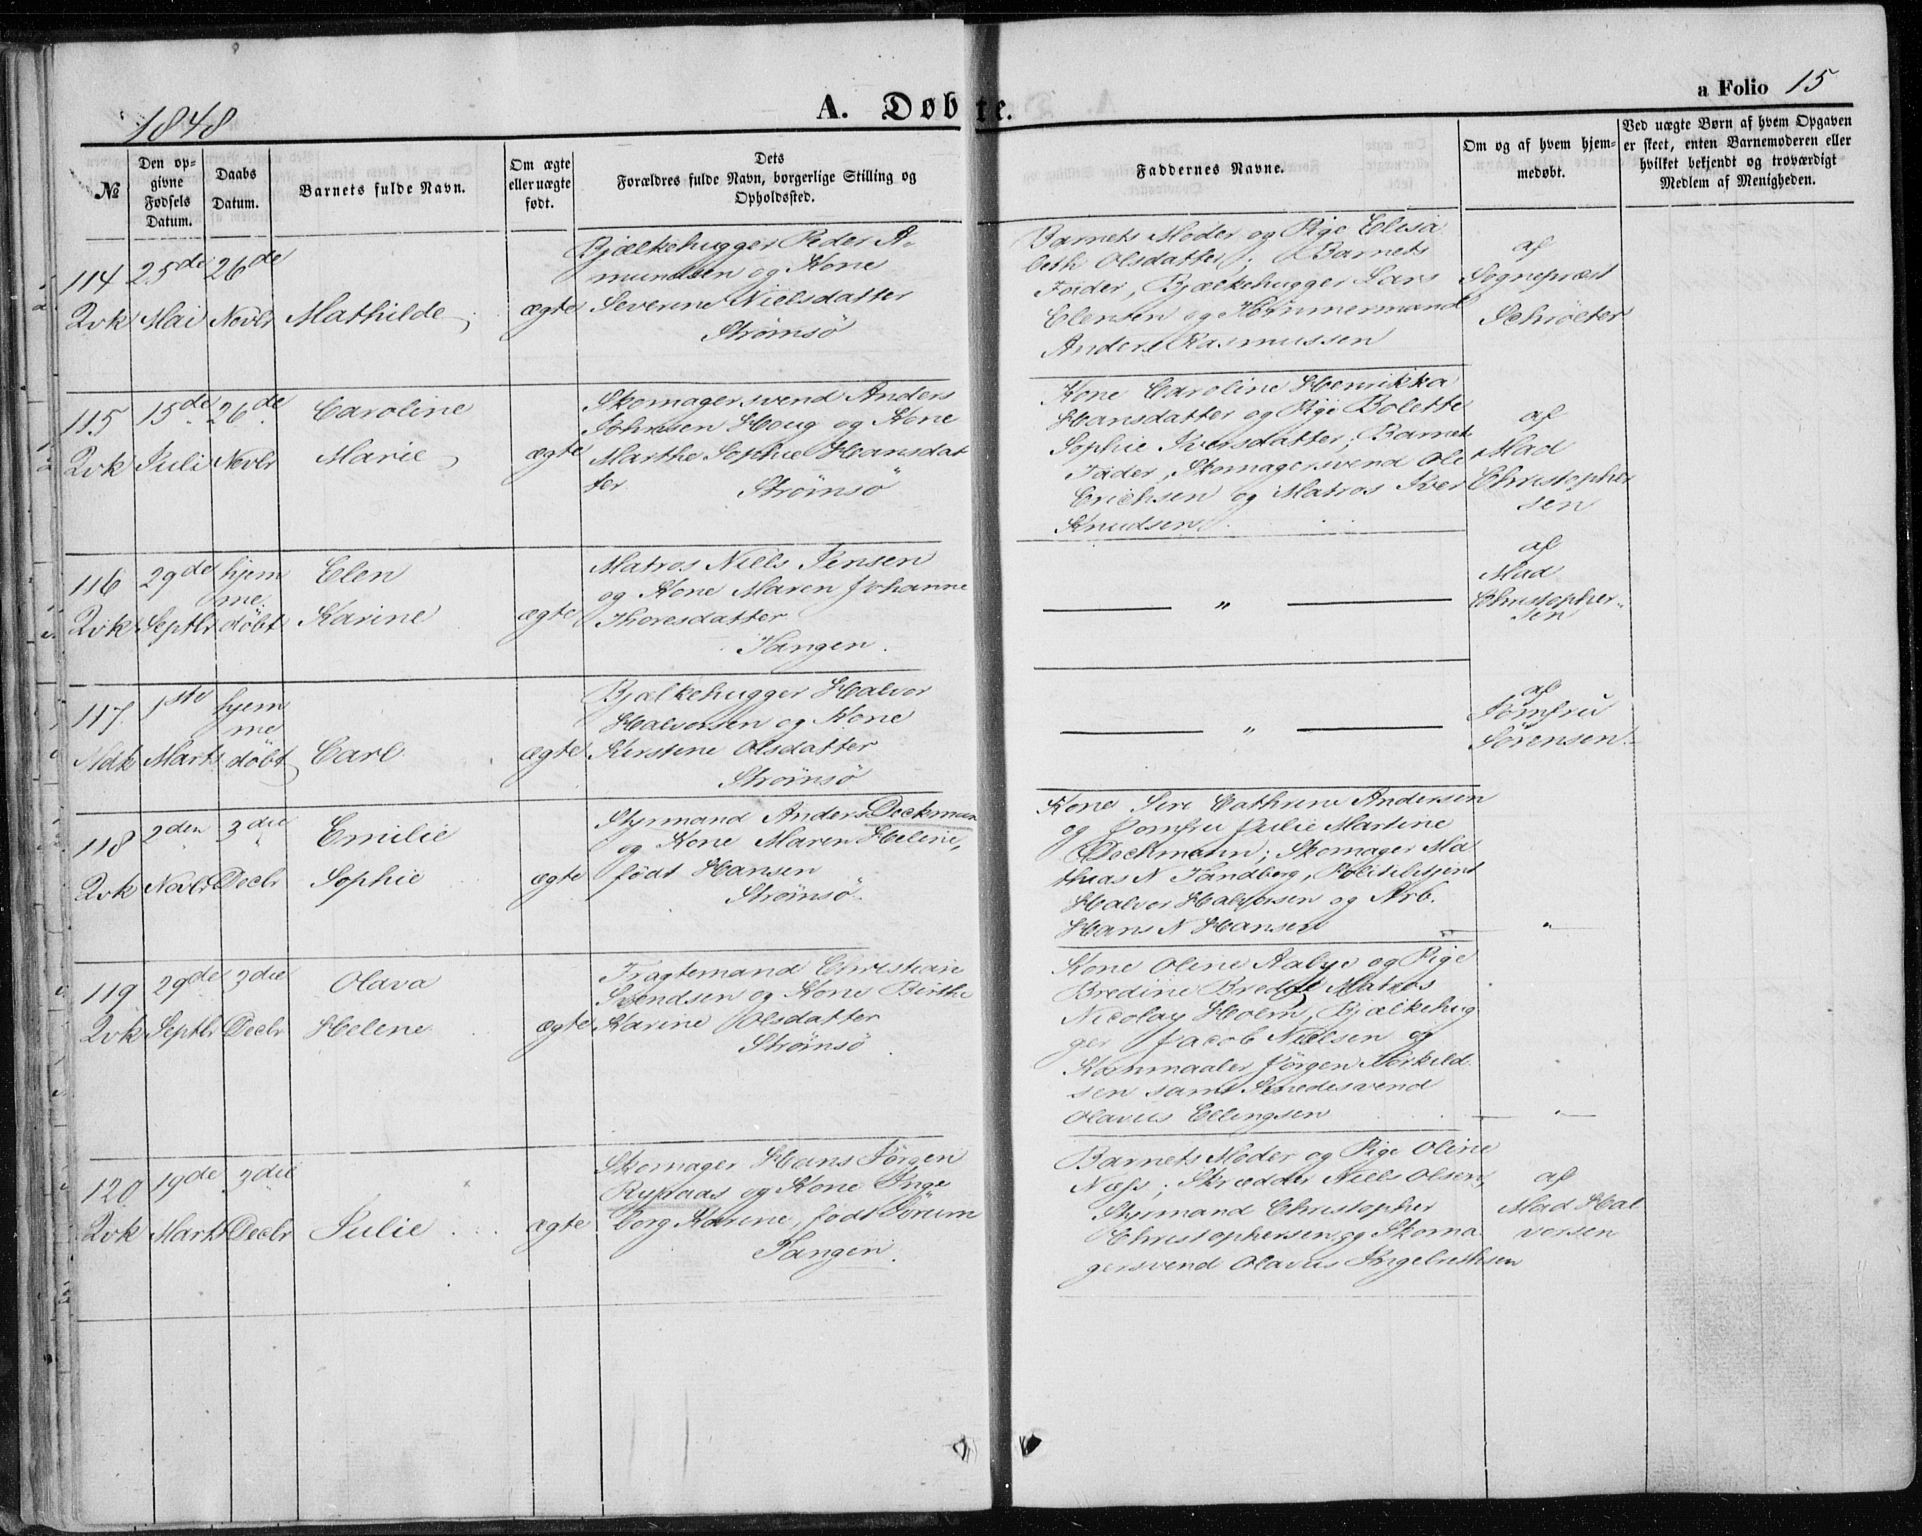 1848
A. Døbte.
a Folio 15
№
Den op-
givne
Fødsels
Datum.
Daabs
Datum.
Barnets fulde Navn.
Om ægte
eller uægte
født.
Dets
Forældres fulde Navn, borgerlige Stilling og
Opholdssted.
Faddernes Navne.
Om og af hvem hjem-
medøbt.
Ved uægte Børn af hvem Opgaven
er skeet, enten Barnemoderen eller
hvilket bekjendt og troværdigt
Medlem af Menigheden.
114
Qvk
25de
Mai
26de
Novbr
Mathilde
ægte
Bjælkehugger Peder A-
mundsen og Kone
Severine Nielsdatter
Strømsö
Barnets Moder og Pige Elisa
beth Olsdatter; Barnets
Fader, Bjælkehugger Lars
Elensen og Tömmermand
Anders Rasmussen
af
Sognepræst
Schröeter
115
Qvk
15de
Juli
26de
Novbr
Caroline
Marie
ægte
Skomagersvend Anders
Johnsen Houg og Kone
Marthe Sophie Hansdat
ter
Strömsö
Kone Caroline Henrikka
Hansdatter og Pige Bolette
Sophie Iversdatter; Barnets
Fader, Skomagersvend Ole
Erichsen og Matros Iver
Knudsen
af
Mad
Christopher
sen
116
Qvk
29de
Septbr
hjem
me
döbt
Elen
Karine
ægte
Matros Niels Jensen
og Kone Maren Johanne
Thoresdatter
Tangen.
"
af
Mad
Christopher-
sen
117.
Mdk
1ste
Marts
hjem
me
döbt
Carl
ægte
Bjælkehugger Halvor
Halvorsen og Kone
Kirstine Olsdatter
Strömsö
"
af
Jomfru
Sörensen.
118
Qvk
2den
Novbr
3die
Decbr
Emilie
Sophie
ægte
Styrmand Anders Dockman
og Kone Maren Heline,
födt Hansen
Strömsö.
Kone Siri Cathrine Andersen
og Jomfru Julie Martine
Dockmann; Skomager Ma
thias N Tandberg, Politibetjent
Halvor Halvorsen og Arb.
Hans N Hansen
"
119
Qvk
29de
Septbr
3die
Decbr
Olava
Helene
ægte
Fragtemand Christian
Svendsen og Kone Birthe
Karine Olsdatter
Strömsö
Kone Oline Aabye og Pige
Bredine Matros
Nicolay Holm, Bjælkehug
ger Jacob Nielsen og
Kornmaaler Jörgen Torkild
sen samt Smedesvend
Olavus Ellingsen
"
120
Qvk
19de
Marts
3die
Decbr
Julie
ægte
Skomager Hans Jörgen
Rypaas og Kone Inge
borg Karine, födt Sörum
Tangen.
Barnets Moder og Pige Oline
Næss; Skrædder Niels Olsen,
Styrmand Christopher
Christophersen og Skoma
gersvend Olavus Engelrethsen
af
Mad Hal
vorsen